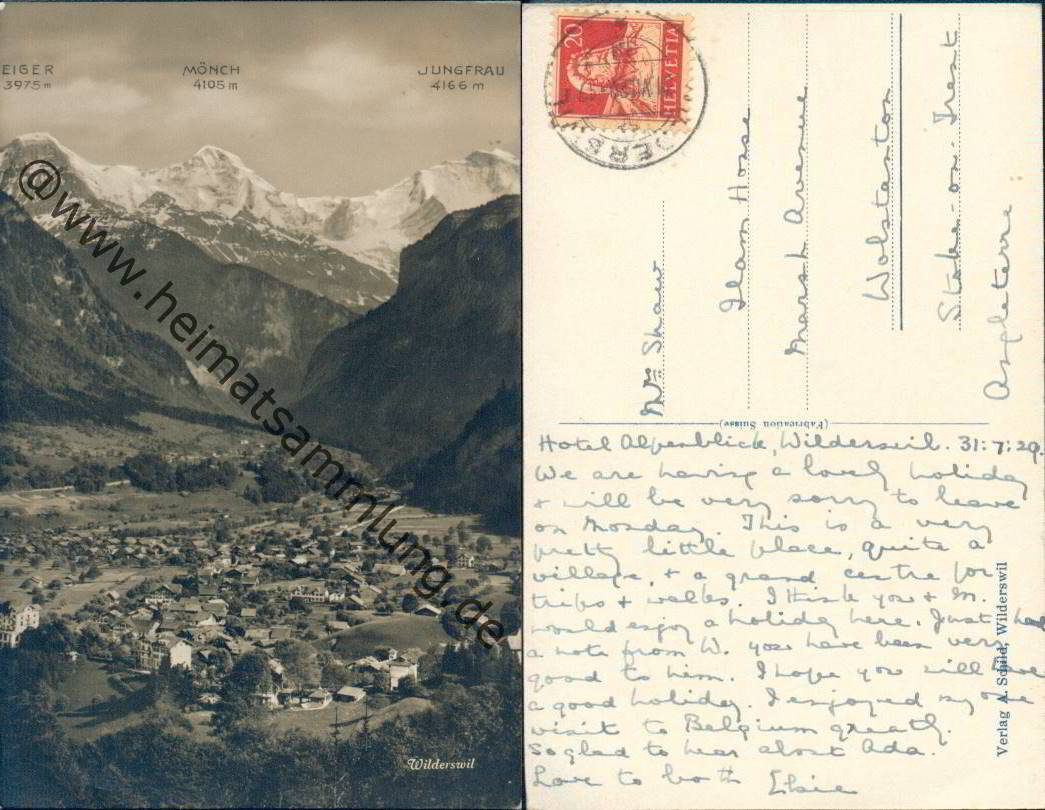 EIGER
3975 m
MÖNCH
4105 m
JUNGFRAU
4166 m
@www.heimatsammlung.de
Wilderswil
20
HELVETIA
Mrs Shaw
Ilam House
Marsh Avenue
Wolstanton
Stoke-on-Trent
Angleterre
(Fabrication Suisse)
Hotel Alpenblick, Wilderswil. 31:7:29.
We are having a lovely holiday
& will be very sorry to leave
on Monday. This is a very
pretty little place, quite a
village, & a grand centre for
trips & walks. I think you & M.
would enjoy a holiday here. Just had
a note from W. you have been very
good to him. I hope you will have
a good holiday. I enjoyed my
visit to Belgium greatly.
So glad to hear about Ada.
Love to both Elsie
Verlag A. Schild, Wilderswil